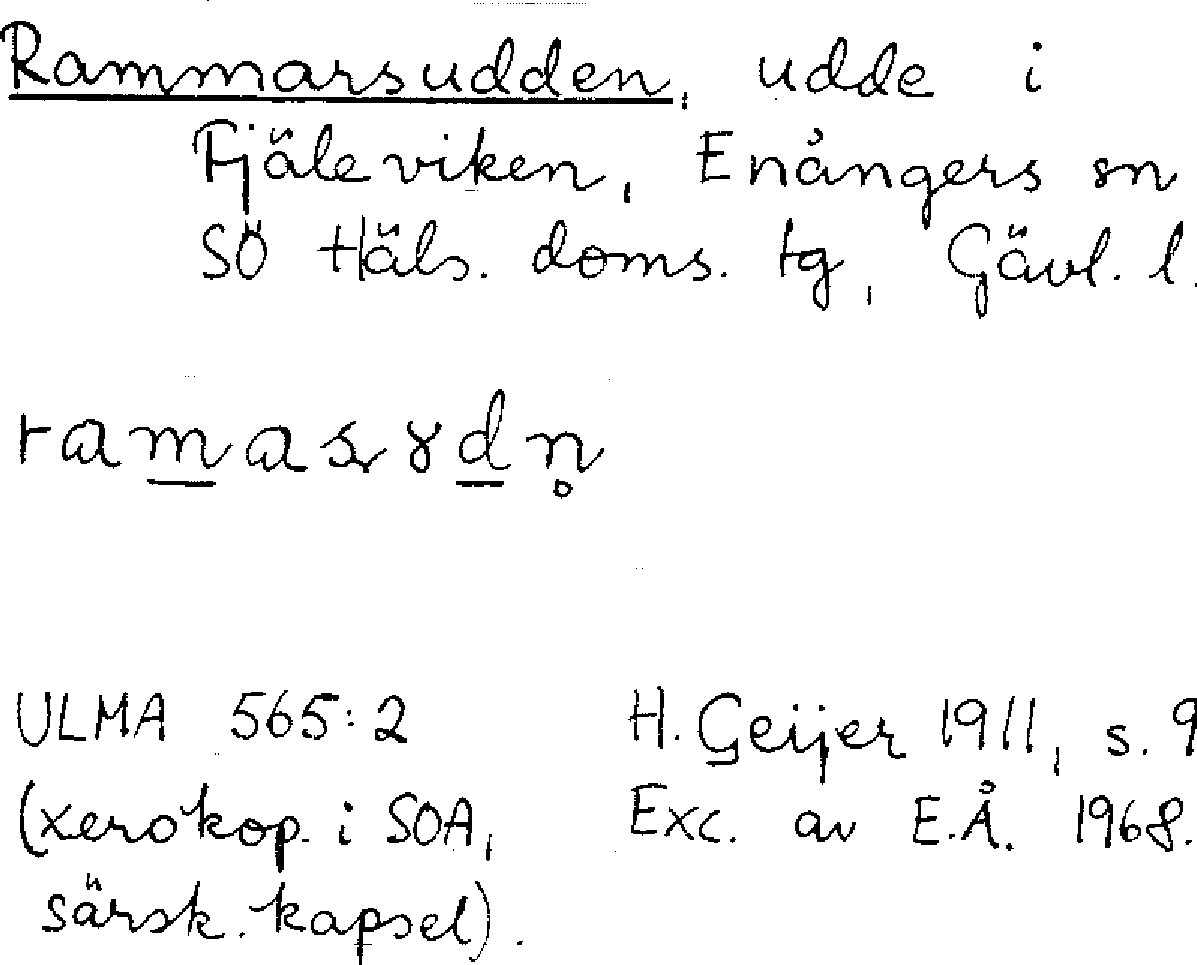 Rammarsudden, udde i
Fjäleviken, Enångers sn
SÖ Häls. doms. tg, Gävl. l.
ramasɤdn̥
ULMA 565:2
(xerokop. i SOA,
särsk. kapsel).
H. Geijer 1911, s. 9
Exc. av E.Å. 1968.